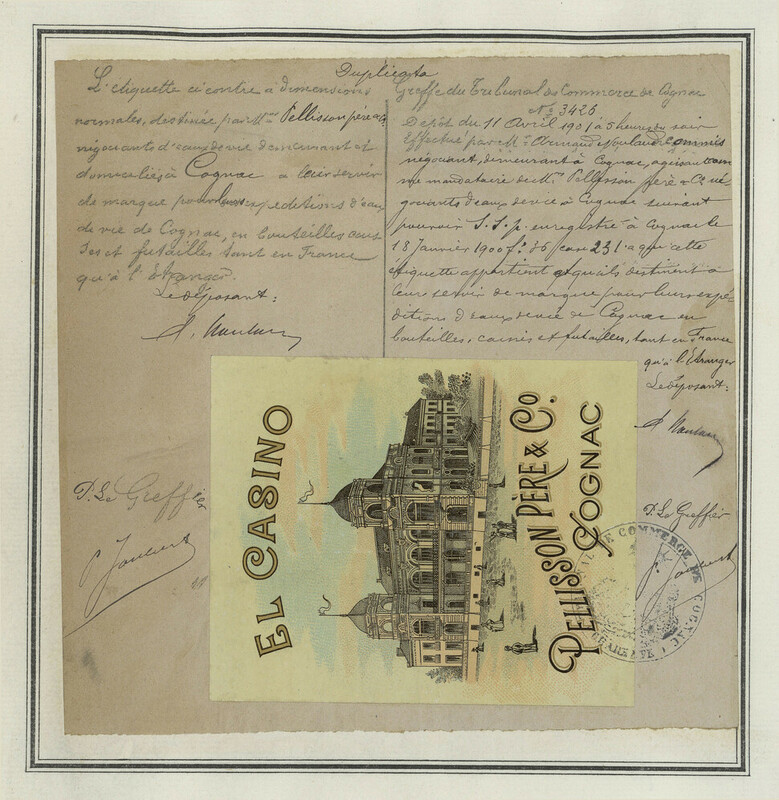 Duplicata
L'étiquette ci contre à dimensions
normales, destinée par M.rs Pellisson père & Co
négociants d'eaux de vie demeurant et
domiciliés à Cognac a leur servir
de marque pour leurs expeditions d'eaux
de vie de Cognac, en bouteilles cais
ses et futailles tant en France
qu'à l'Etranger.
Le déposant:
P. Le Greffier
P. Joubert
Greffe du Tribunal de Commerce de Cognac
No 3426
Dépôt du 11 Avril 1901 à 5 heures du soir
Effectué par M. Arnaud commis
négociant, demeurant à Cognac, agissant com
me mandataire de M.rs Pellisson père & Co né
gociants d'eaux de vie à Cognac suivant
pouvoir S.S.p. enregistré à Cognac le
18 Janvier 1900 fo 86 case 231 a que cette
étiquette appartient et qu'ils destinent a
leur servir de marque pour leurs expé
ditions d'eaux de vie de Cognac en
bouteilles, caisses et futailles, tant en France
qu'à l'Etranger
Le déposant:
P. Le Greffier
P. Joubert
EL CASINO
PELLISSON PÈRE & Co.
COGNAC
TRIBUNAL DE COMMERCE DE COGNAC
CHARENTE